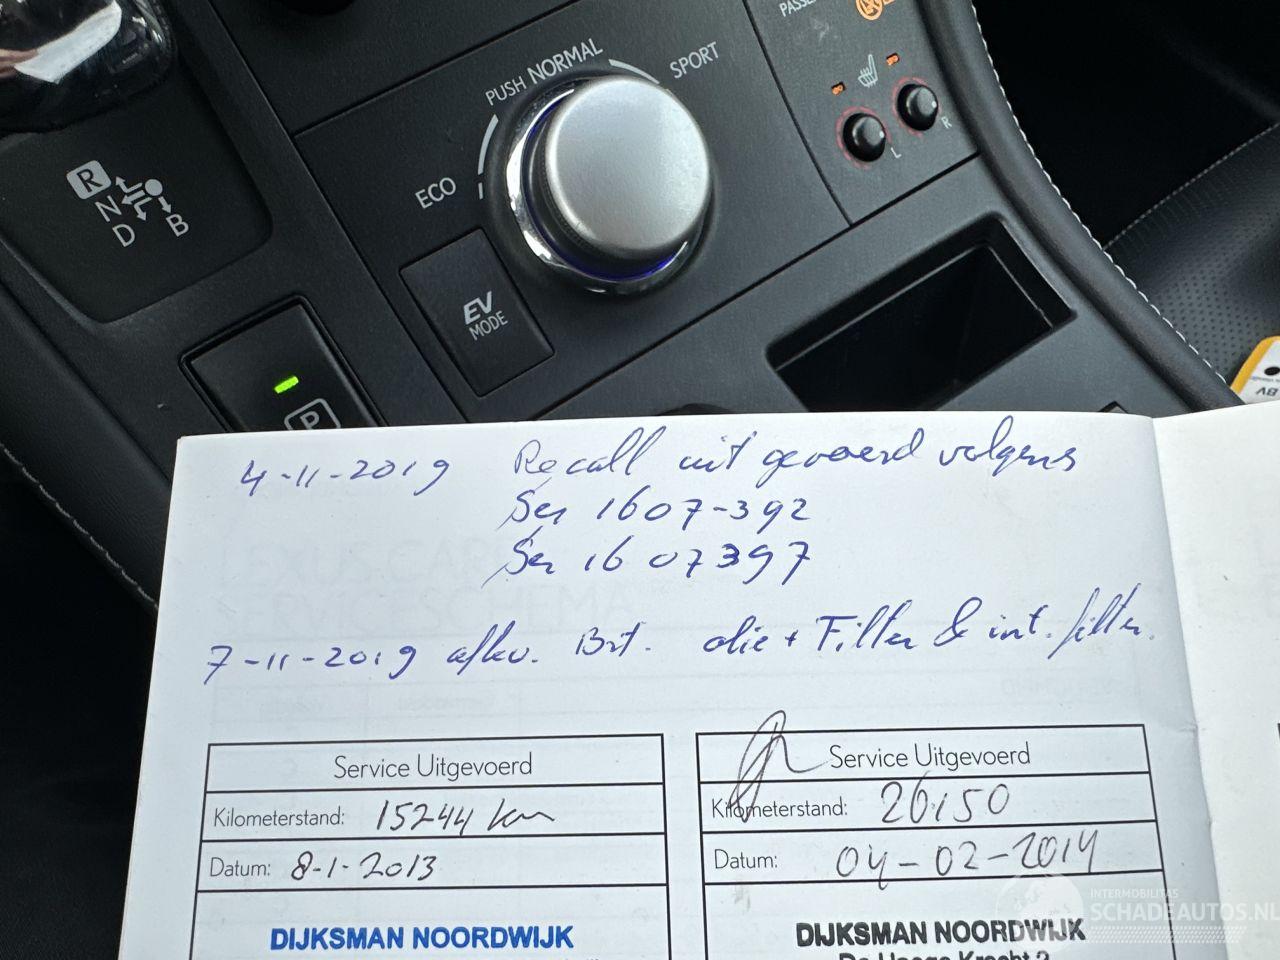 PUSH NORMAL
SPORT
ECO
R
N
D
B
EV
MODE
P
L
R
4-11-2019 Recall uit gevoerd volgens
Ser 1607-392
Ser 1607397
7-11-2019 afkv. Brt. olie + Filter & int. filter.
Service Uitgevoerd
Kilometerstand: 15244 km
Datum: 8-1-2013
DIJKSMAN NOORDWIJK
Service Uitgevoerd
Kilometerstand: 26150
Datum: 04-02-2014
DIJKSMAN NOORDWIJK
INTERMOBILITAS
SCHADEAUTOS.NL